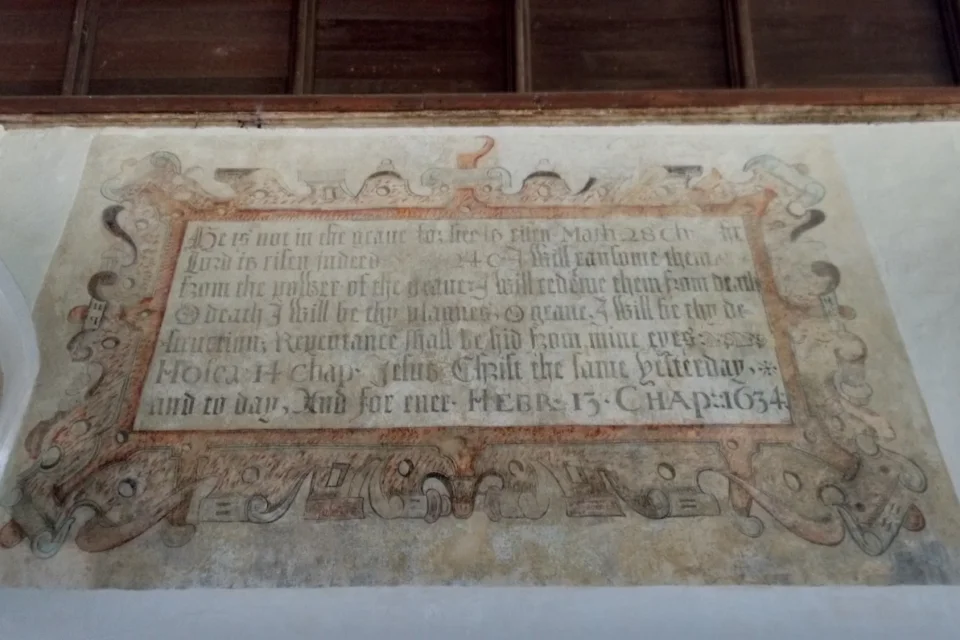 He is not in the graue for hee is risen Math. 28 Ch
Lord is risen indeed 24 c. I will ransome them
from the power of the graue: I will redeeme them from death
O death I will be thy plagues, O graue, I will be thy de
struction; Repentance shall be hid from mine eyes:
Hosea. 14 chap. Jesus Christ the same yesterday,
and to day, And for euer. HEBR: 13. CHAP: 1634